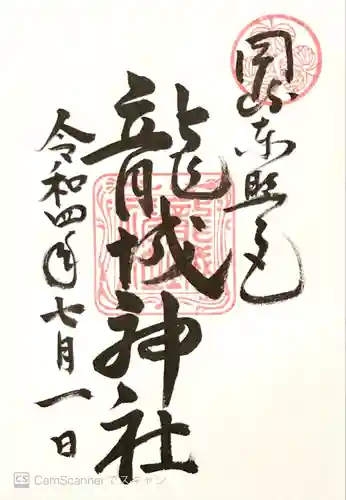 岡山東照宮
龍城神社
令和四年七月一日
CS CamScannerでスキャン